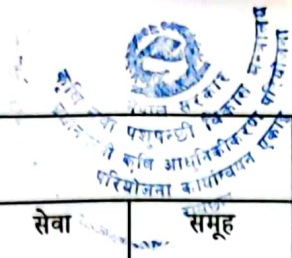 नेपाल सरकार
कृषि तथा पशुपन्छी विकास मन्त्रालय
कृषि आधुनिकीकरण परियोजना
परियोजना कार्यान्वयन एकाइ
सेवा समूह